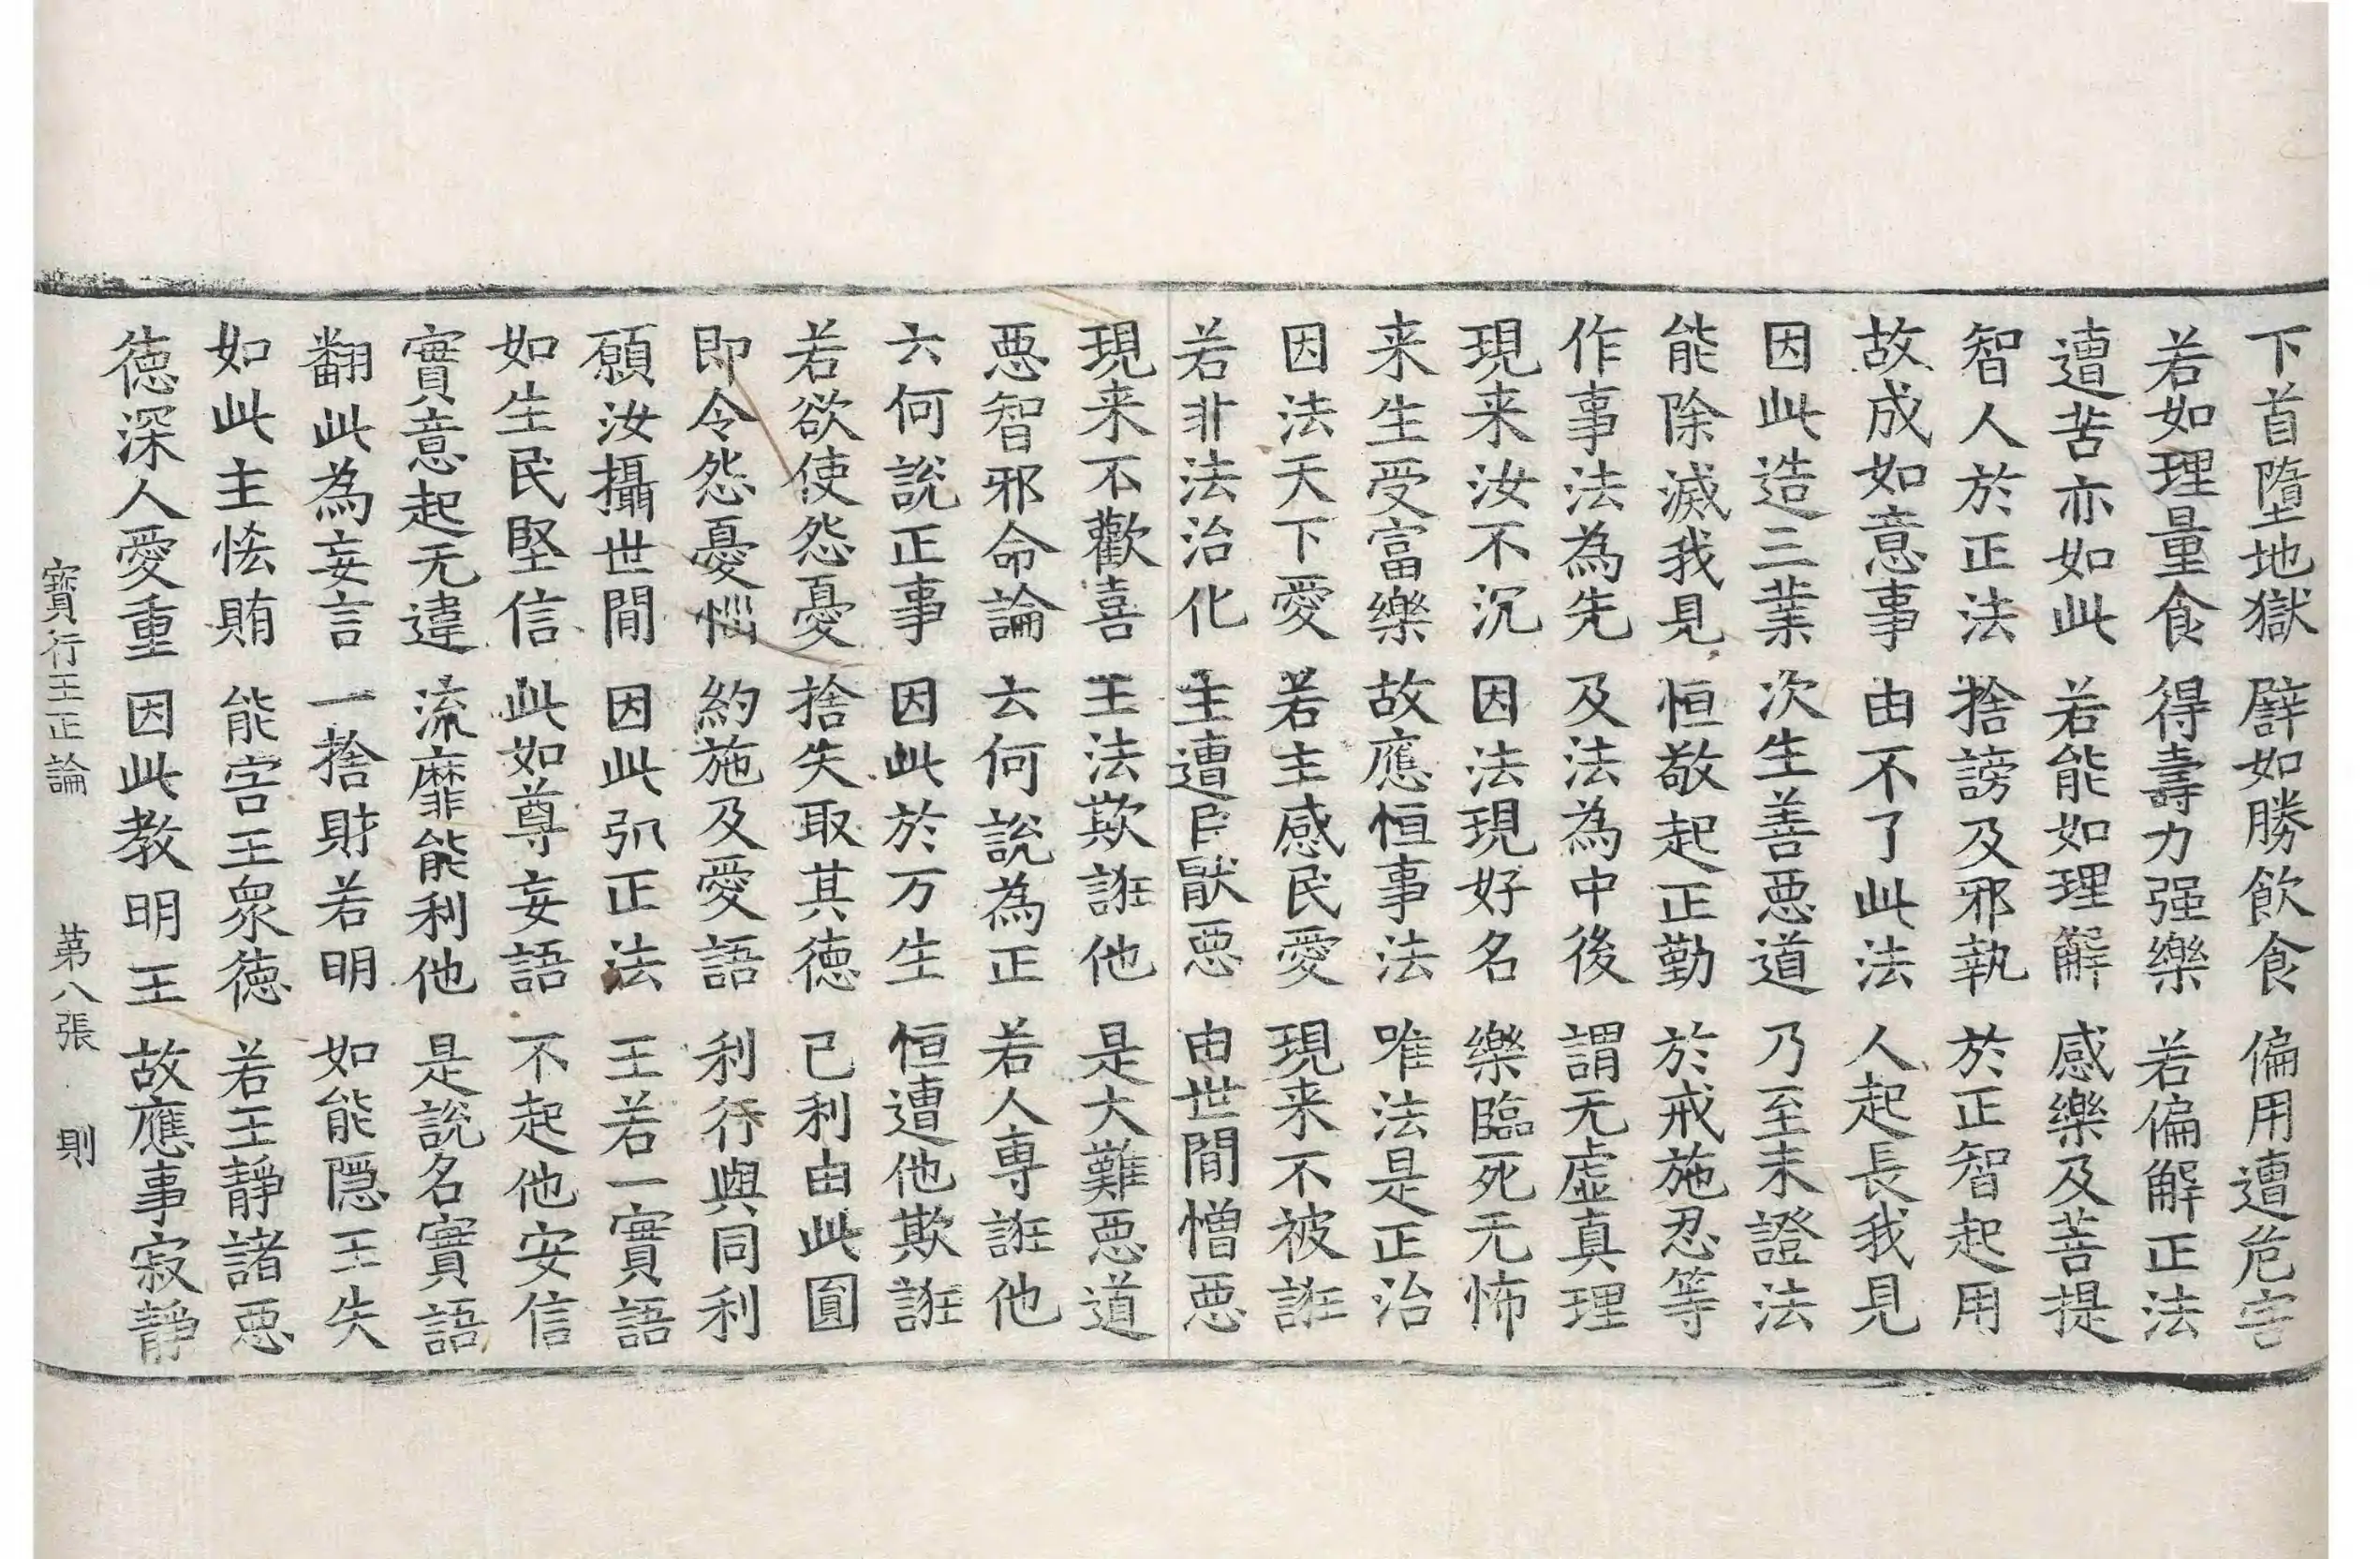 下首墮地獄 譬如勝飲食 偏用遭危害
若如理量食 得壽力强樂 若偏解正法
遭苦亦如此 若能如理解 感樂及菩提
智人於正法 捨謗及邪執 於正智起用
故成如意事 由不了此法 人起長我見
因此造三業 次生善惡道 乃至未證法
能除滅我見 恒敬起正勤 於戒施忍等
作事法為先 及法為中後 謂无虛真理
現来汝不沉 因法現好名 樂臨死无怖
来生受富樂 故應恒事法 唯法是正治
因法天下愛 若主感民愛 現来不被誑
若非法治化 主遭臣猒惡 由世間憎惡
現来不歡喜 王法欺誑他 是大難惡道
惡智邪命論 云何說為正 若人専誑他
云何說正事 因此於万生 恒遭他欺誑
若欲使怨憂 捨失取其徳 已利由此圓
即令怨憂惱 約施及愛語 利行與同利
願汝攝世間 因此弘正法 王若一實語
如生民堅信 此如尊妄語 不起他安信
實意起无違 流靡能利他 是說名實語
翻此為妄言 一捨財若明 如能隱王失
如此主悋賄 能害王衆徳 若王靜諸惡
徳深人愛重 因此教明王 故應事寂靜
寶行王正論 第八張 則